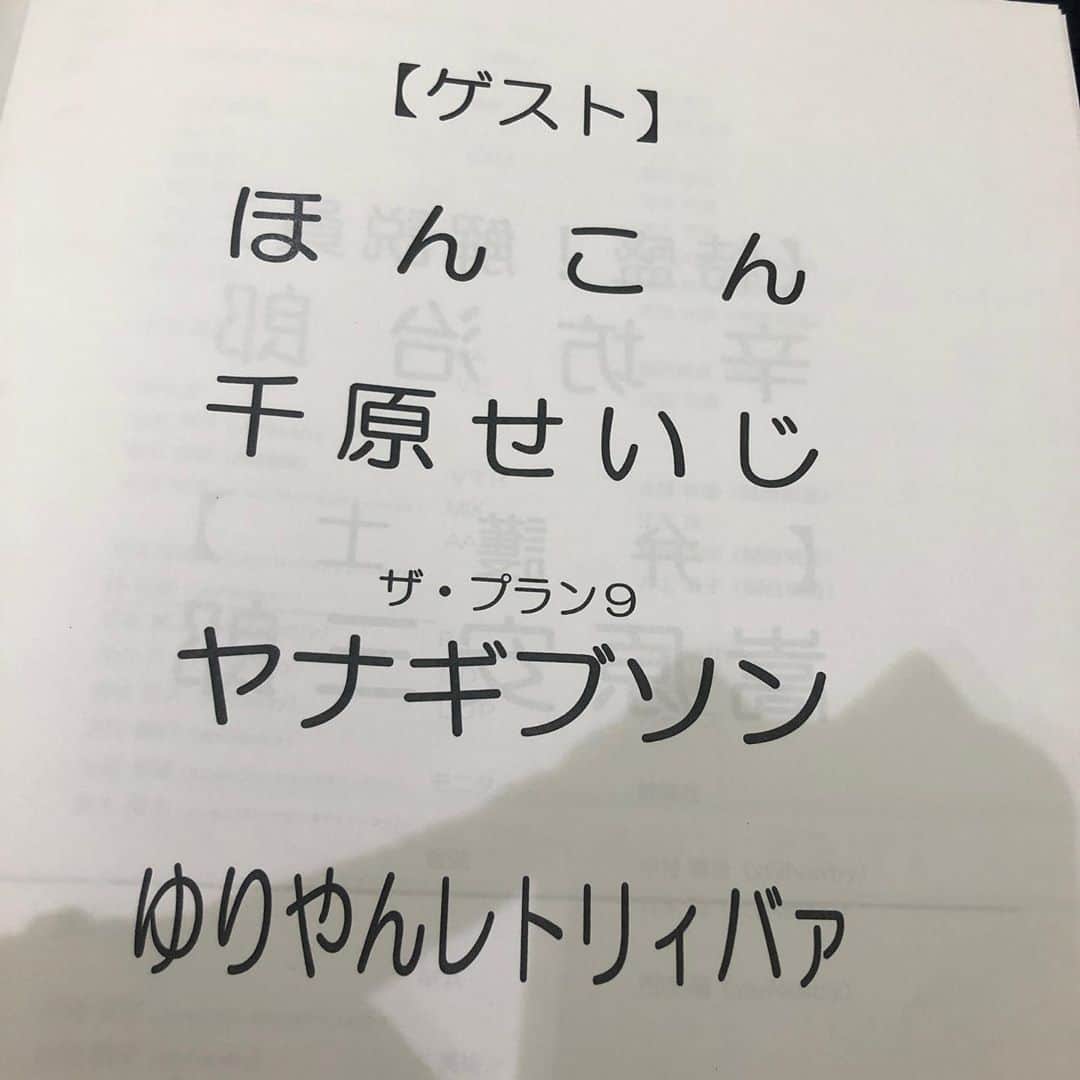 【ゲスト】
ほんこん
千原せいじ
ザ・プラン9
ヤナギブソン
ゆりやんレトリィバァ